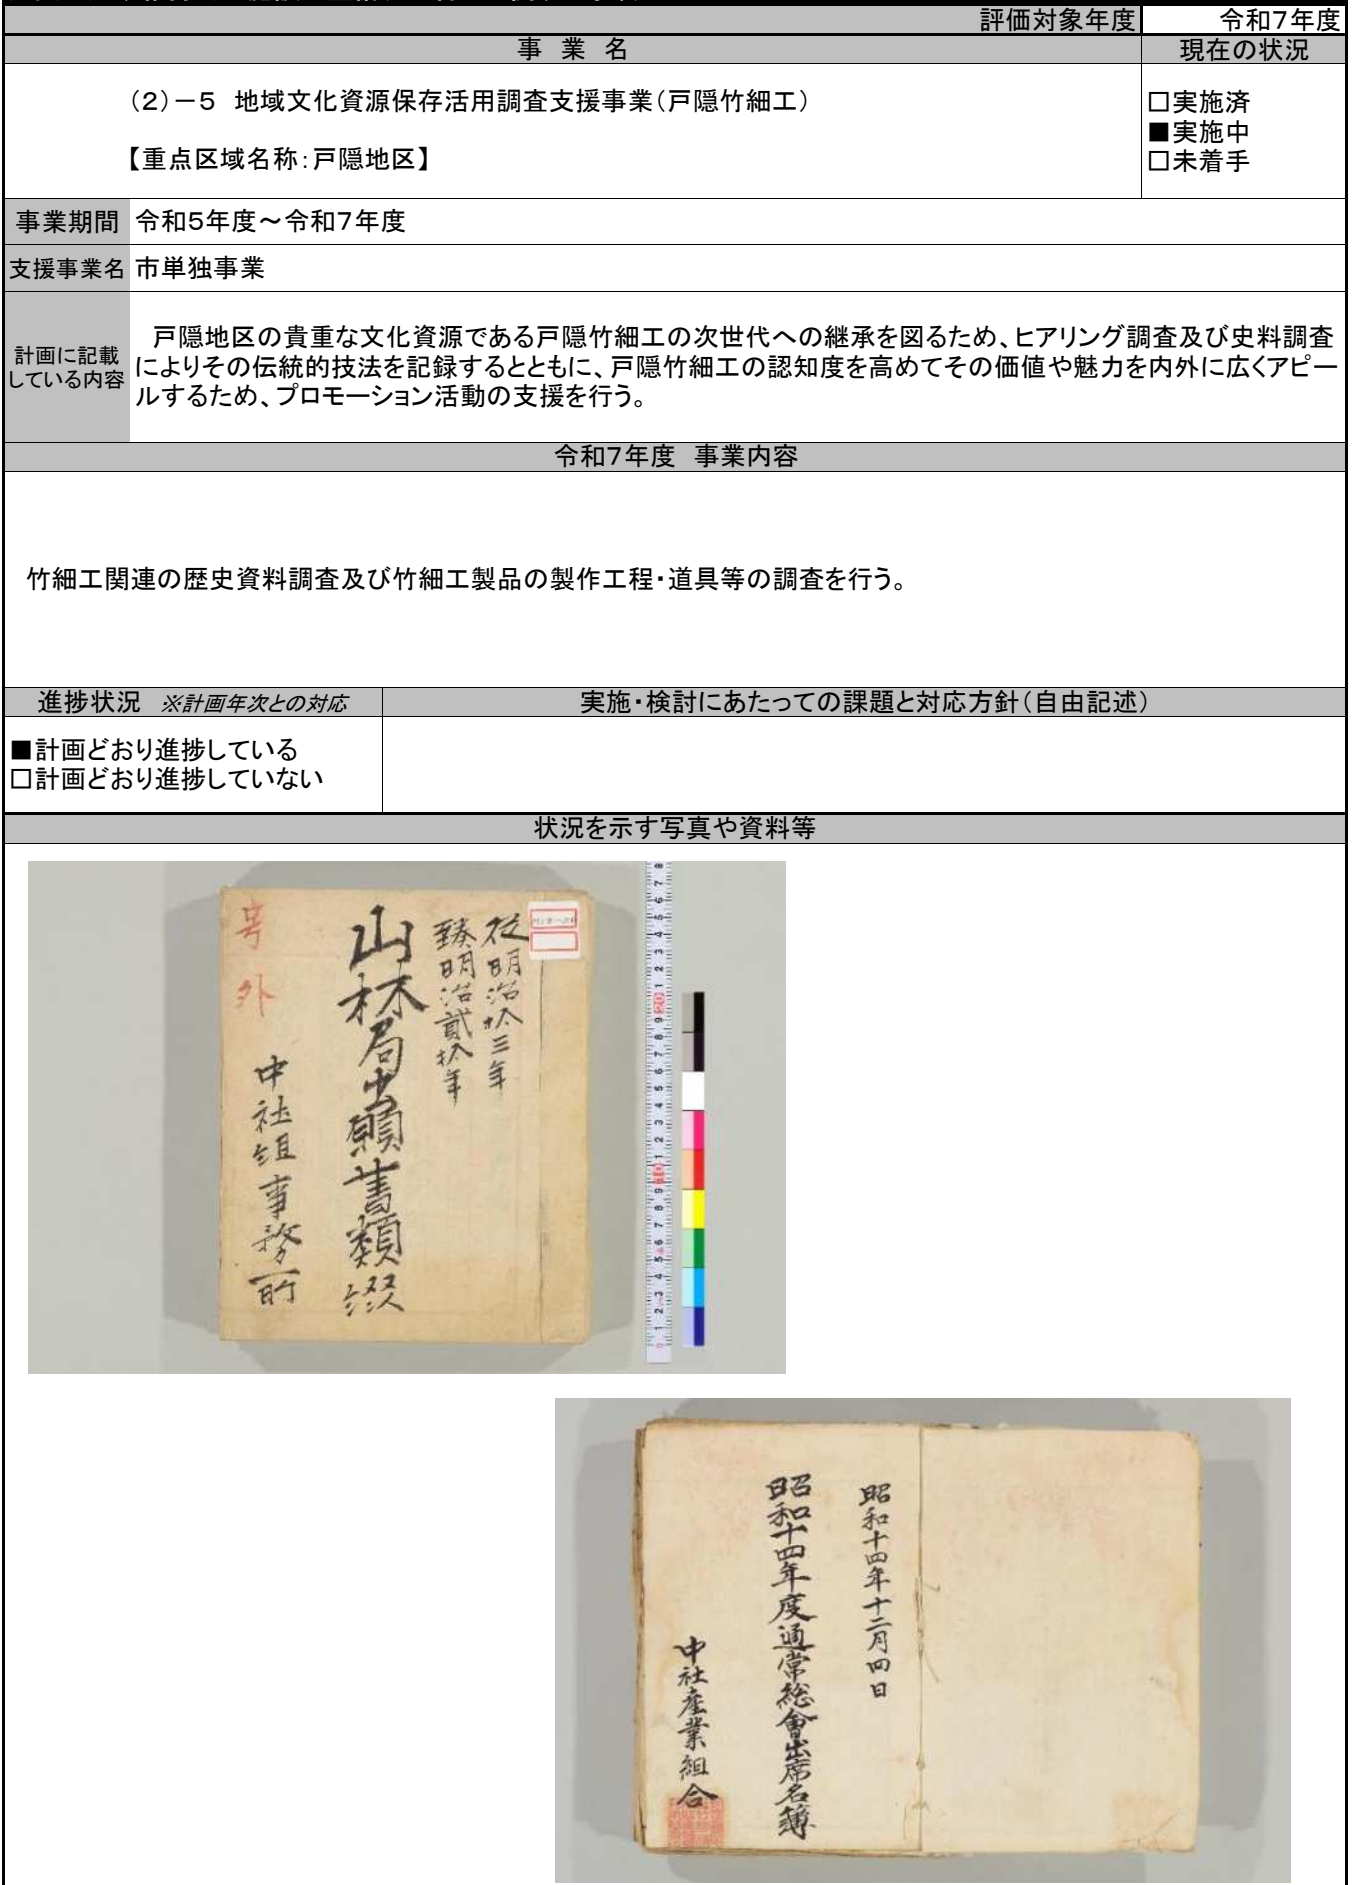 評価対象年度
令和7年度
事 業 名
現在の状況
（２）－５ 地域文化資源保存活用調査支援事業（戸隠竹細工）
【重点区域名称：戸隠地区】
□実施済
■実施中
□未着手
事業期間
令和5年度～令和7年度
支援事業名
市単独事業
計画に記載
している内容
戸隠地区の貴重な文化資源である戸隠竹細工の次世代への継承を図るため、ヒアリング調査及び史料調査
によりその伝統的技法を記録するとともに、戸隠竹細工の認知度を高めてその価値や魅力を内外に広くアピー
ルするため、プロモーション活動の支援を行う。
令和7年度 事業内容
竹細工関連の歴史資料調査及び竹細工製品の製作工程・道具等の調査を行う。
進捗状況 ※計画年次との対応
実施・検討にあたっての課題と対応方針（自由記述）
■計画どおり進捗している
□計画どおり進捗していない
状況を示す写真や資料等
従明治拾三年
至明治貳拾年
山林局出願書類綴
中社組事務所
号外
昭和十四年十二月四日
昭和十四年度通常総會出席名簿
中社産業組合